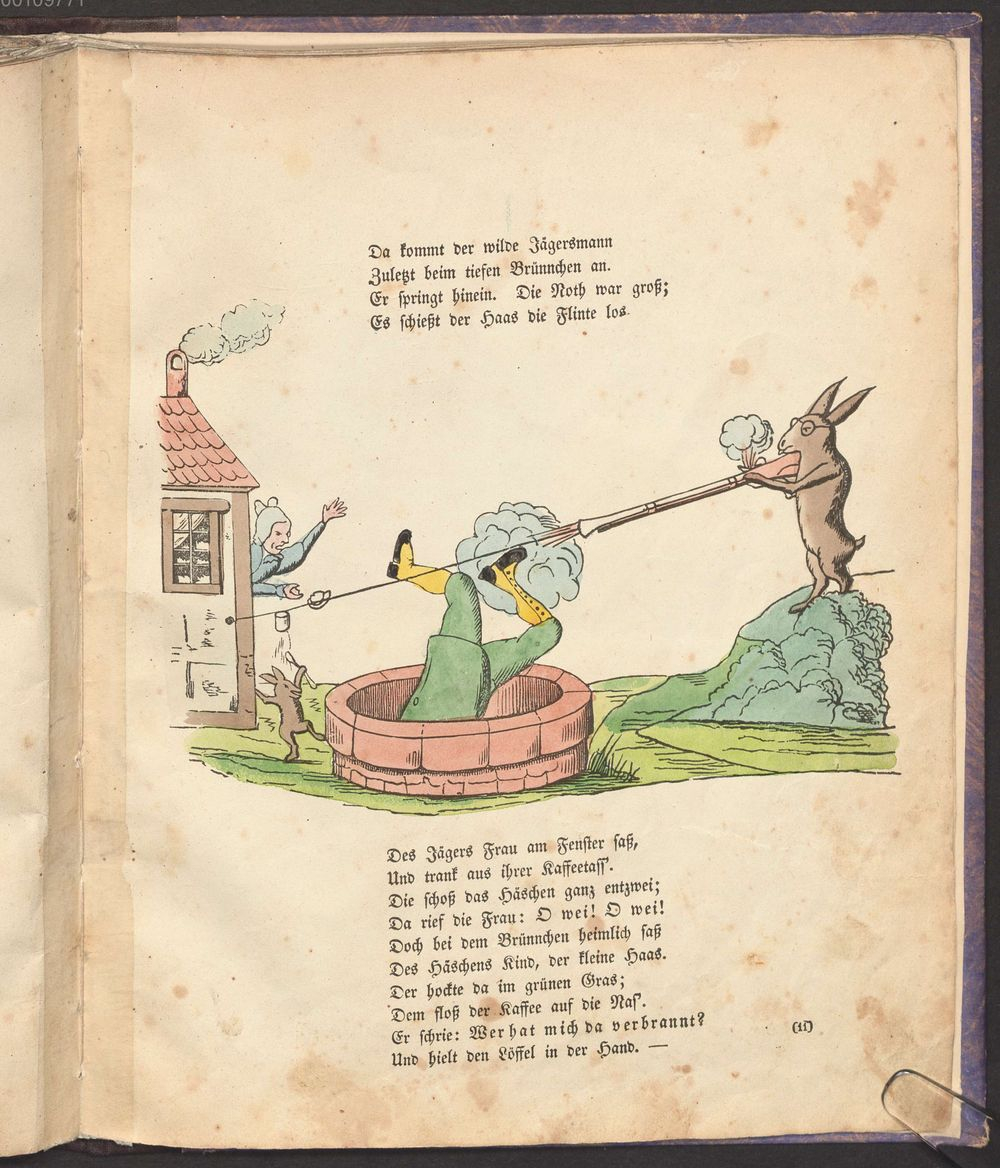 00109771
Da kommt der wilde Jägersmann
Zuletzt beim tiefen Brünnchen an.
Er springt hinein. Die Noth war groß;
Es schießt der Haas die Flinte los.
Des Jägers Frau am Fenster saß,
Und trank aus ihrer Kaffeetass'.
Die schoß das Häschen ganz entzwei;
Da rief die Frau: O wei! O wei!
Doch bei dem Brünnchen heimlich saß
Des Häschens Kind, der kleine Haas.
Der hockte da im grünen Gras;
Dem floß der Kaffee auf die Nas'.
Er schrie: Wer hat mich da verbrannt?
Und hielt den Löffel in der Hand. —
(11)